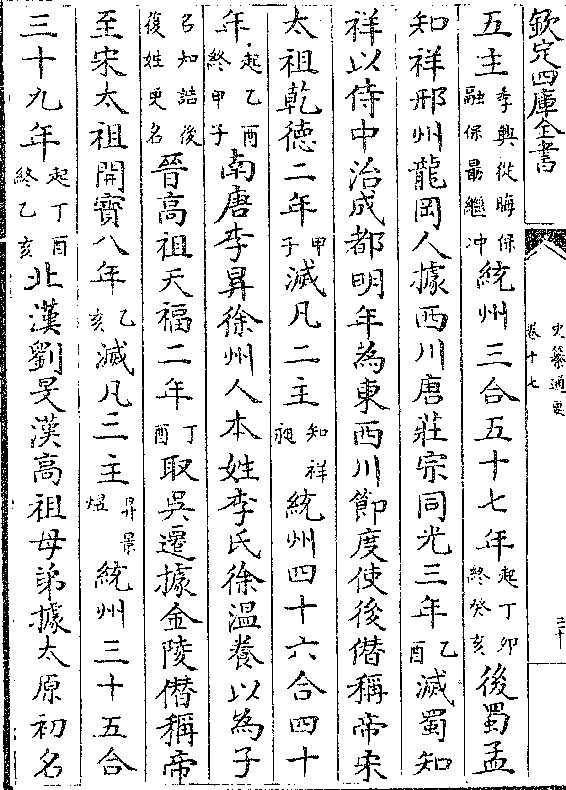 欽定四庫全書
史纂通要
卷十七
三十
五主季興從晦保融保朂繼冲統州三合五十七年起丁卯終癸亥後蜀孟
知祥邢州龍岡人據西川唐莊宗同光三年乙酉滅蜀知
祥以侍中治成都明年為東西川節度使後僭稱帝宋
太祖乾德二年甲子滅凡二主知祥昶統州四十六合四十
年起乙酉終甲子南唐李昇徐州人本姓李氏徐温養以為子
名知誥後復姓更名晉高祖天福二年丁酉取吳遷據金陵僭稱帝
至宋太祖開寶八年乙亥滅凡三主昇景煜統州三十五合
三十九年起丁酉終乙亥北漢劉旻漢高祖母弟據太原初名